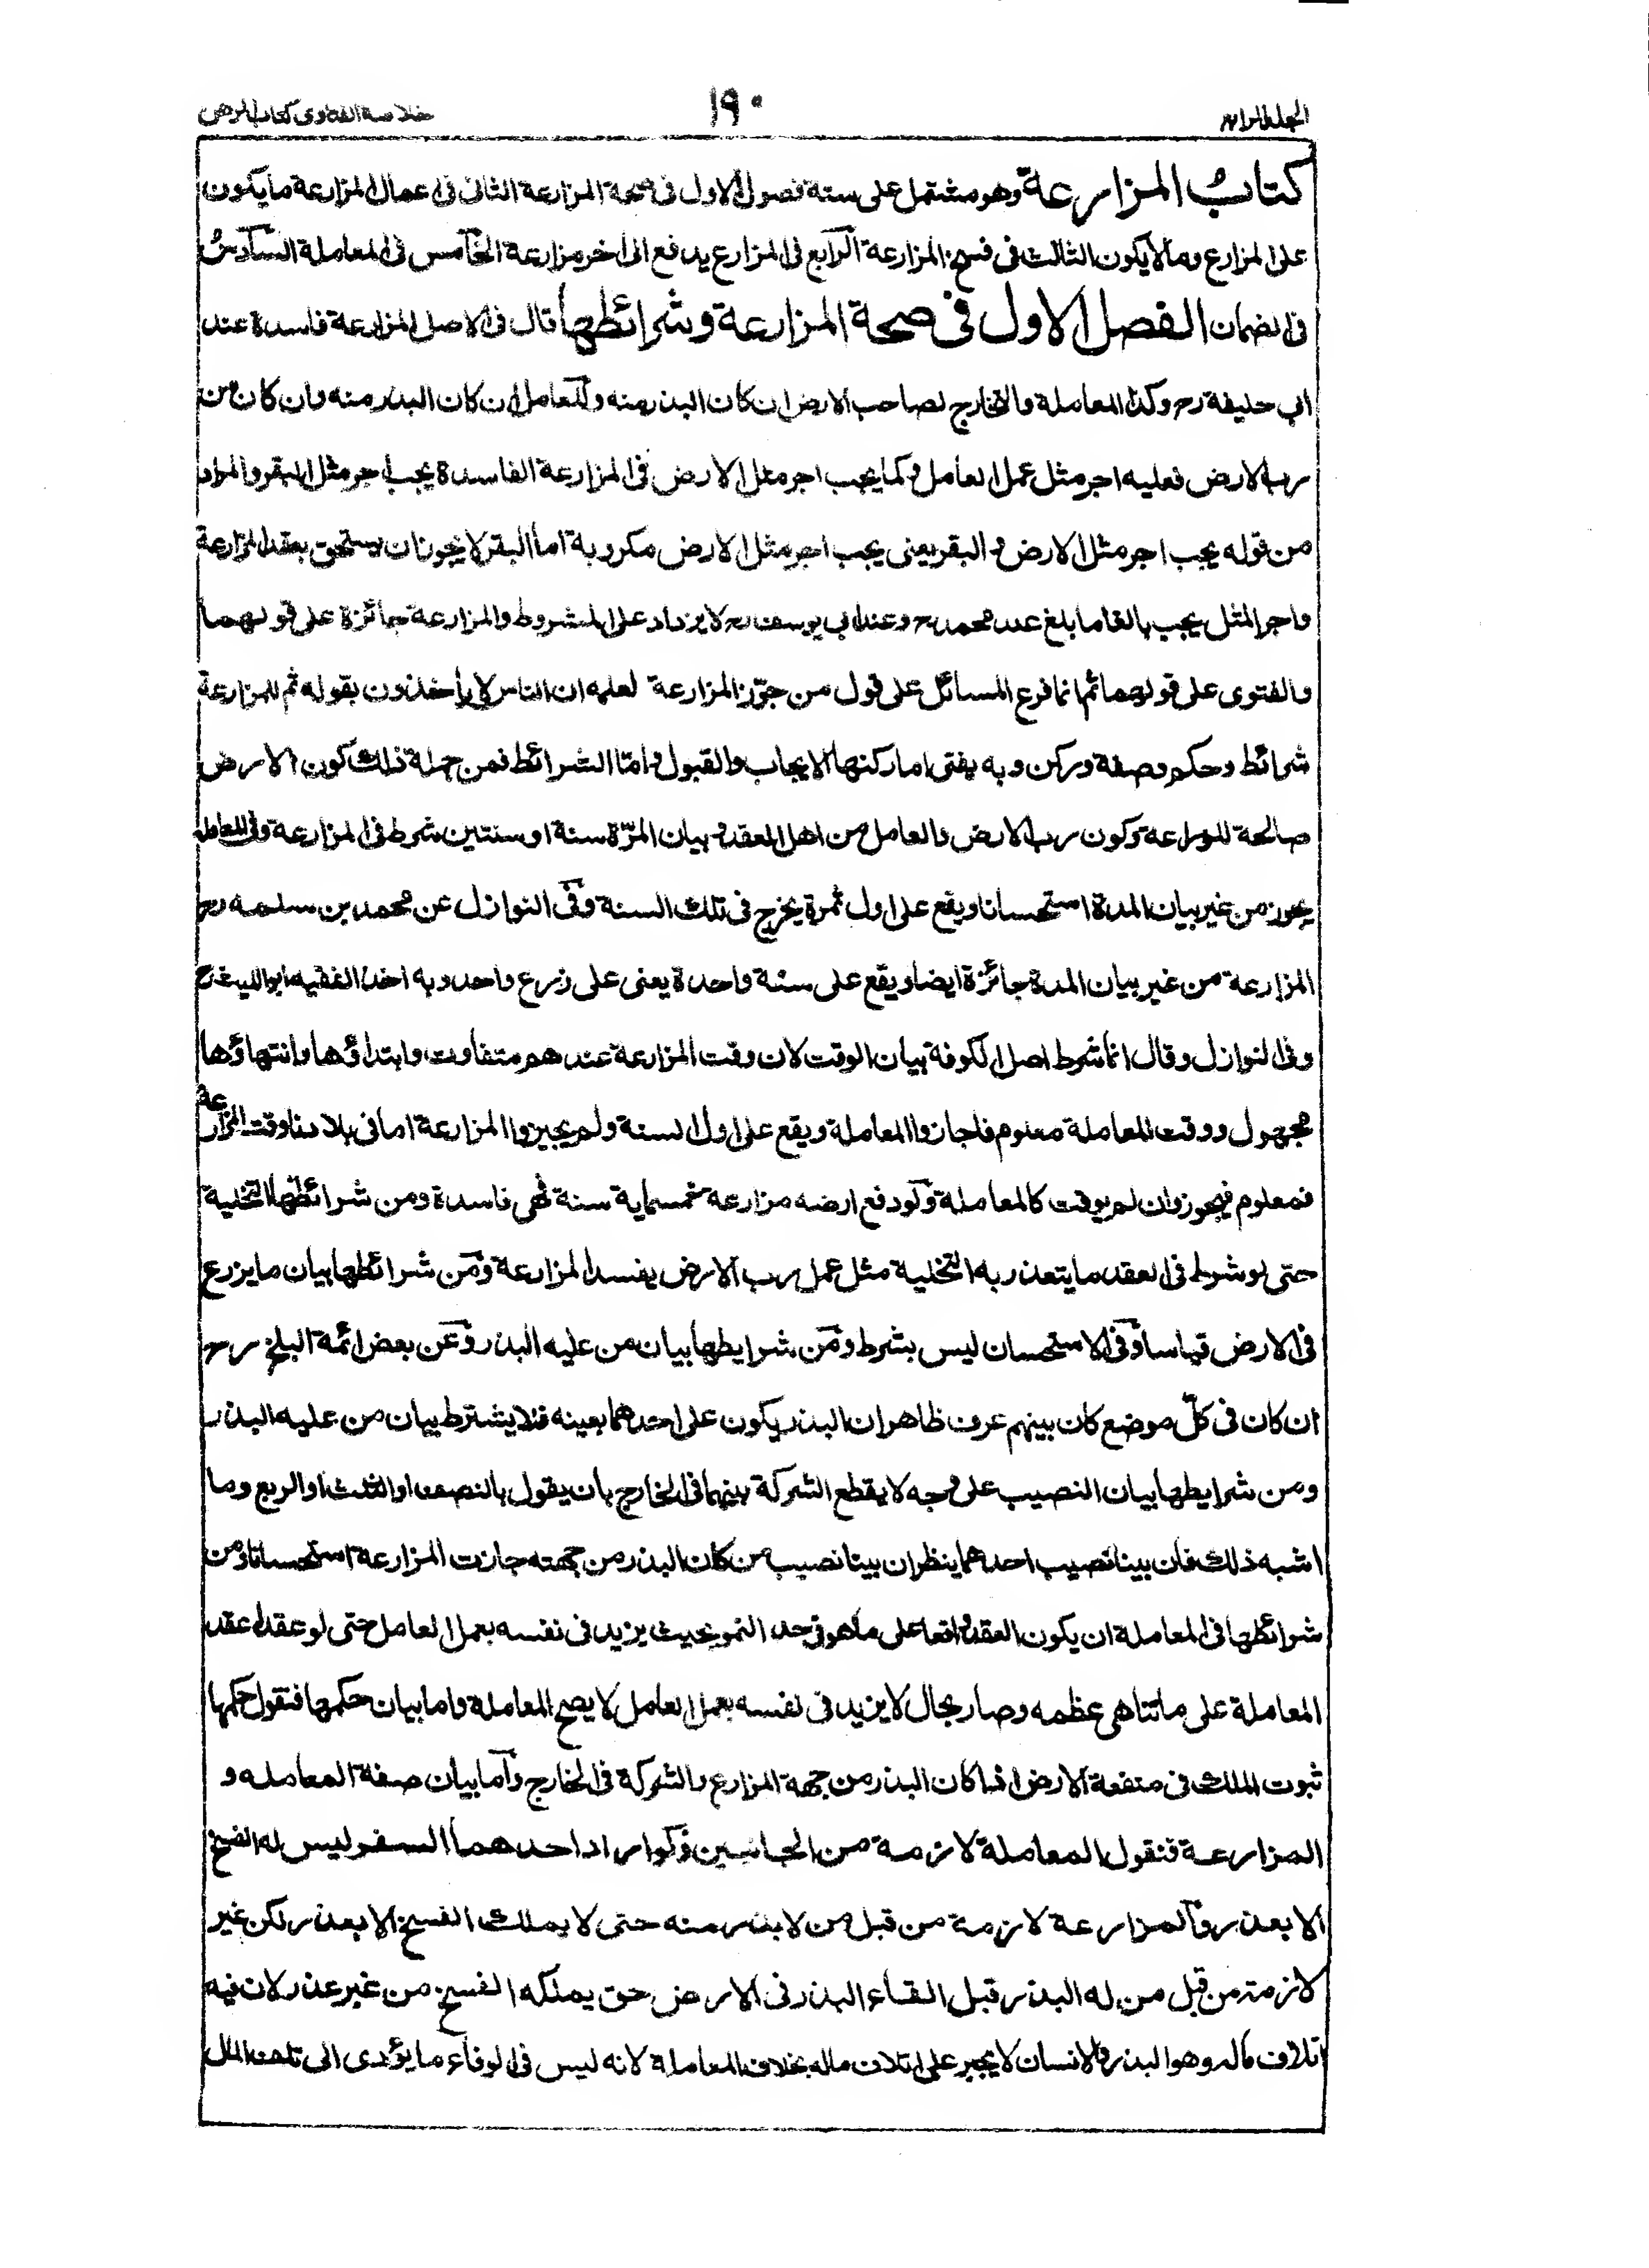 الجلد الرابع
١٩٠
خلاصة الفتاوى كتاب الرهن
كتاب المزارعة وهو مشتمل على ستة فصول الاول فى صحة المزارعة الثانى فى اعمال المزارعة ما يكون
على المزارع وما لا يكون الثالث فى فسخ المزارعة الرابع فى المزارع يدفع الى اخر مزارعة الخامس فى المعاملة السادس
فى الضمان الفصل الاول فى صحة المزارعة وشرائطها قال فى الاصل المزارعة فاسدة عند
ابى حنيفة رح وكذا المعاملة والخارج لصاحب الارض ان كان البذر منه وللعامل ان كان البذر منه وان كان من
رب الارض فعليه اجر مثل عمل العامل وكما يجب اجر مثل الارض فى المزارعة الفاسدة يجب اجر مثل البقر والمراد
من قوله يجب اجر مثل الارض و البقر يعنى يجب اجر مثل الارض مكروبة اما البقر لا يجوز ان يستحق بعقد المزارعة
واجر المثل يجب بالغا ما بلغ عند محمد رح وعند ابى يوسف رح لا يزداد على المشروط والمزارعة جائزة على قولهما
والفتوى على قولهما ثم انما فرع المسائل على قول من جوّز المزارعة لعلمه ان الناس لا يأخذون بقوله ثم للمزارعة
شرائط وحكم وصفة وركن وبه يفتى اما ركنها الايجاب والقبول و امّا الشرائط فمن جملة ذلك كون الارض
صالحة للزراعة وكون رب الارض والعامل من اهل العقد و بيان المدّة سنة او سنتين شرط فى المزارعة وفى المعاملة
يجوز من غير بيان المدة استحسانا ويقع على اول ثمرة يخرج فى تلك السنة وفى النوازل عن محمد بن سلمه رح
المزارعة من غير بيان المدة جائزة ايضا ويقع على سنة واحدة يعنى على زرع واحد وبه اخذ الفقيه ابو الليث رح
وفى النوازل وقال انما شرط اهل الكوفة بيان الوقت لان وقت المزارعة عندهم متفاوت وابتداؤها وانتهاؤها
مجهول ووقت المعاملة معلوم فاجازوا المعاملة ويقع على اول السنة ولم يجيزوا المزارعة اما فى بلادنا وقت المزارعة
فمعلوم فيجوز وان لم يوقت كالمعاملة ولو دفع ارضه مزارعة خمسماية سنة فهى فاسدة ومن شرائطها التخلية
حتى لو شرط فى العقد ما يتعذر به التخلية مثل عمل رب الارض يفسد المزارعة ومن شرائطها بيان ما يزرع
فى الارض قياسا وفى الاستحسان ليس بشرط ومن شرايطها بيان من عليه البذر وعن بعض ائمة البلخ رح
ان كان فى كلّ موضع كان بينهم عرف ظاهر ان البذر يكون على احدهما بعينه فلا يشترط بيان من عليه البذر
ومن شرايطها بيان النصيب على وجه لا يقطع الشركة بينهما فى الخارج بان يقول بالنصف او الثلث او الربع وما
اشبه ذلك فان بينا نصيب احدهما ينظر ان بينا نصيب من كان البذر من جهته جازت المزارعة استحسانا ومن
شرائطها فى المعاملة ان يكون العقد واقعا على ما هو فى حد النمو بحيث يزيد فى نفسه بعمل العامل حتى لو عقدا عقد
المعاملة على ما تناهى عظمه وصار بحال لا يزيد فى نفسه بعمل العامل لا يصح المعاملة واما بيان حكمها فنقول حكمها
ثبوت الملك فى منفعة الارض اذا كان البذر من جهة المزارع والشركة فى الخارج واما بيان صفة المعامله و
المزارعة فنقول المعاملة لازمة من الجانبين ولو اراد احدهما السفر ليس له الفسخ
الا بعذر والمزارعة لازمة من قبل من لا بذر منه حتى لا يملك الفسخ الا بعذر لكن غير
لازمة من قبل من له البذر قبل القاء البذر فى الارض حتى يملكه الفسخ من غير عذر لان فيه
اتلاف ماله وهو البذر والانسان لا يجبر على اتلاف ماله بخلاف المعاملة لانه ليس فى الوفاء ما يؤدى الى تلف المال